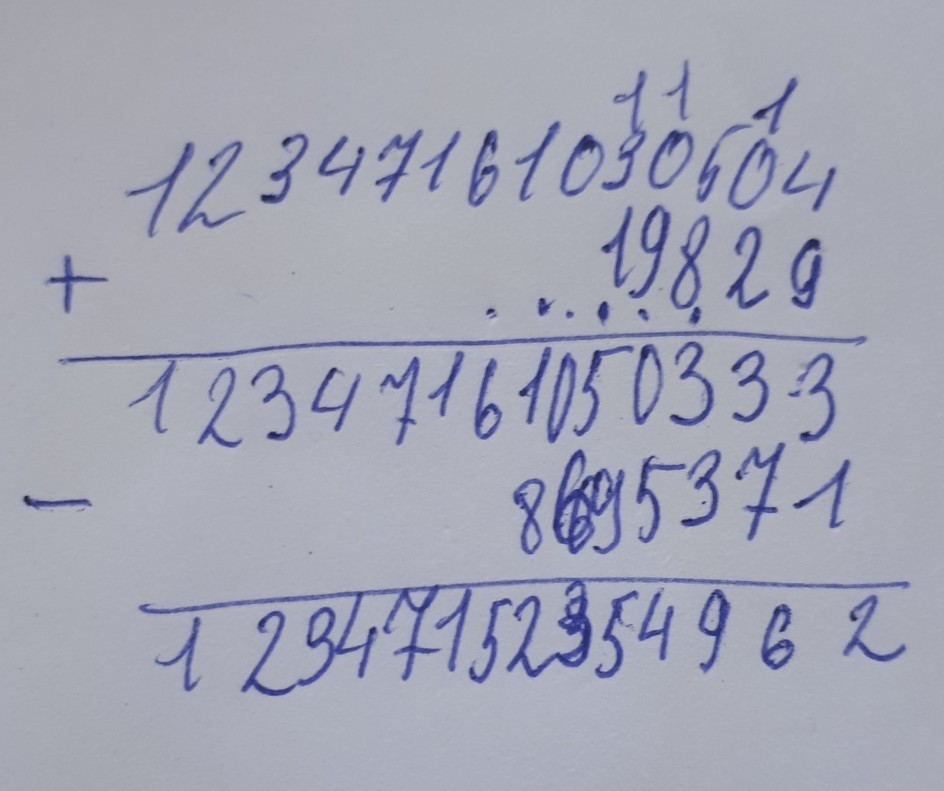 1 1 1
12347161030504
+ 19829
......
12347161050333
- 8695371
12347152354962